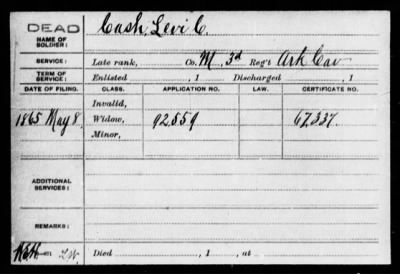 DEAD
NAME OF SOLDIER: Cash, Levi C.
SERVICE: Late rank, Co. M, 3d Reg't Ark Cav
TERM OF SERVICE: Enlisted , 1 Discharged , 1
DATE OF FILING. CLASS. APPLICATION NO. LAW. CERTIFICATE NO.
Invalid,
1865 May 8. Widow, 92.559 67.337.
Minor,
ADDITIONAL SERVICES:
REMARKS:
Died , 1 , at